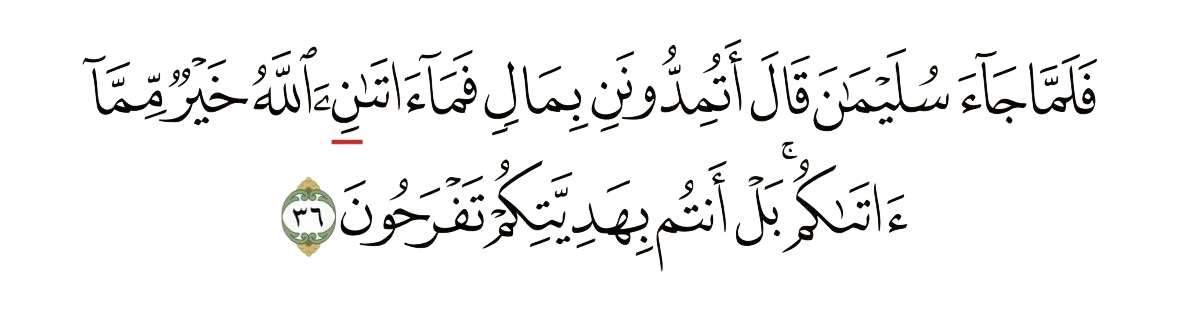 فَلَمَّا جَآءَ سُلَيْمَٰنَ قَالَ أَتُمِدُّونَنِ بِمَالٍ فَمَآ ءَاتَىٰنِۦَ ٱللَّهُ خَيْرٌ مِّمَّآ
ءَاتَىٰكُمۚ بَلْ أَنتُم بِهَدِيَّتِكُمْ تَفْرَحُونَ ٣٦